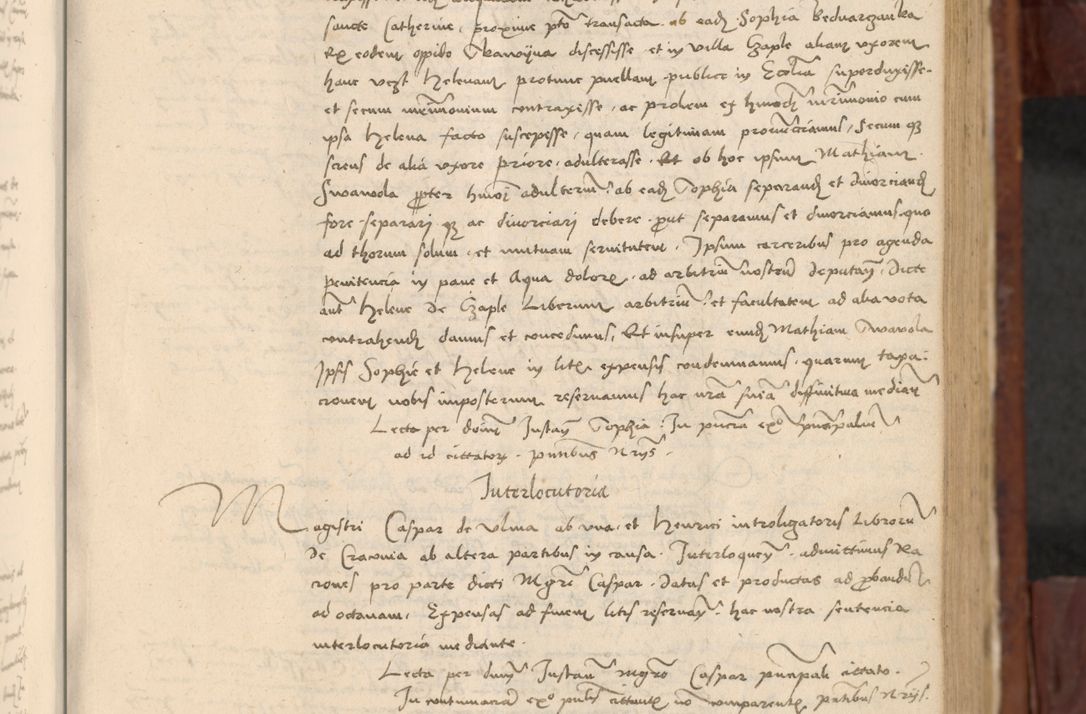 sancte Catherine, proxime pto transacta ab eadẽ Sophia Beduarzauka
Ex eodem oppido discessisse et in villa Czaple aliam vxorem
hanc Helenam protunc puellam publice in Ecclia superduxisse
et secum mrimonium contraxisse, ac prolem ex hmodi mrimonio cum
ipsa Helena facto suscepisse, quam legitimam pronuciamus, Secum qz
sciens de alia vxore priore, adulterasse. Et ob hoc ipsum Mathiam
Swawola ppter hmoi adulteriu ab eadẽ Sophia separandũ et diuorciandũ
fore separari qz ac diuorciari debere, put separamus et diuorciamus, quo
ad thorum solum, et mutuam seruitutem, Ipsum carceribus pro agenda
penitencia in pane et Aqua dolore, ad arbitriũ nostrũ deputañ, Dicte
aut Helene de Czaple Liberum arbitriũ et facultatem ad alia vota
contrahendi damus et concedimus, Et insuper eundẽ Mathiam Swawola
Ipsis Sophie et Helene in litis expensis condemnamus, quarum taxa:
cionem nobis imposterum reseruamus hac nra snia diffinitiua median
Lecta per dominũ Instañ Sophia. In pncia
ad id cittatorũ. pntibus Nriis.
Interlocutoria
Magistri Caspar de Vlma ab vna, et Henrici introligatoris Librorũ
de Cracouia ab altera partibus in causa. Interloquẽn. admittimus Ra
ciones pro parte dicti Mgri Caspar. Datas et productas ad pbandũ
ad octauam, Expensas ad finem litis reseruañ. hac nostra sentencia
interlocutoria mediante.
Lecta per dnum Instañ Mgro Caspar principali cittato.
In contumaciã cittati nõ comparentis, pntibus Nriis.